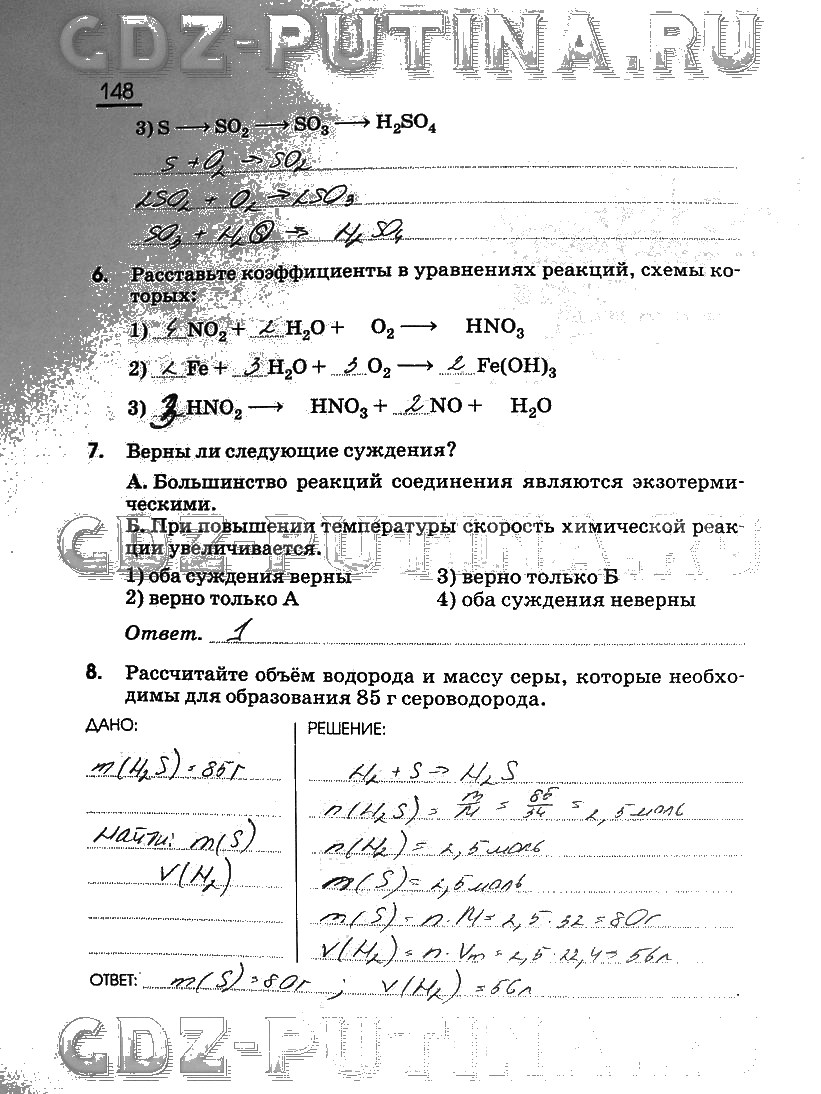 GDZ-PUTINA.RU
148
3) S ⟶ SO₂ ⟶ SO₃ ⟶ H₂SO₄
S + O₂ → SO₂
2SO₂ + O₂ → 2SO₃
SO₃ + H₂O → H₂SO₄
6. Расставьте коэффициенты в уравнениях реакций, схемы ко-
торых:
1) 4 NO₂ + 2 H₂O + O₂ ⟶ HNO₃
2) 2 Fe + 3 H₂O + 3 O₂ ⟶ 2 Fe(OH)₃
3) 3 HNO₂ ⟶ HNO₃ + 2 NO + H₂O
7. Верны ли следующие суждения?
А. Большинство реакций соединения являются экзотерми-
ческими.
Б. При повышении температуры скорость химической реак-
ции увеличивается.
GDZ-PUTINA.RU
1) оба суждения верны 3) верно только Б
2) верно только А 4) оба суждения неверны
Ответ. 1
8. Рассчитайте объём водорода и массу серы, которые необхо-
димы для образования 85 г сероводорода.
ДАНО: РЕШЕНИЕ:
m(H₂S) = 85г H₂ + S → H₂S
n(H₂S) = m/M = 85/34 = 2,5 моль
Найти: m(S) n(H₂) = 2,5 моль
V(H₂) m(S) = 2,5 моль
m(S) = n · M = 2,5 · 32 = 80г
V(H₂) = n · Vm = 2,5 · 22,4 = 56л
ОТВЕТ: m(S) = 80г ; V(H₂) = 56л
GDZ-PUTINA.RU